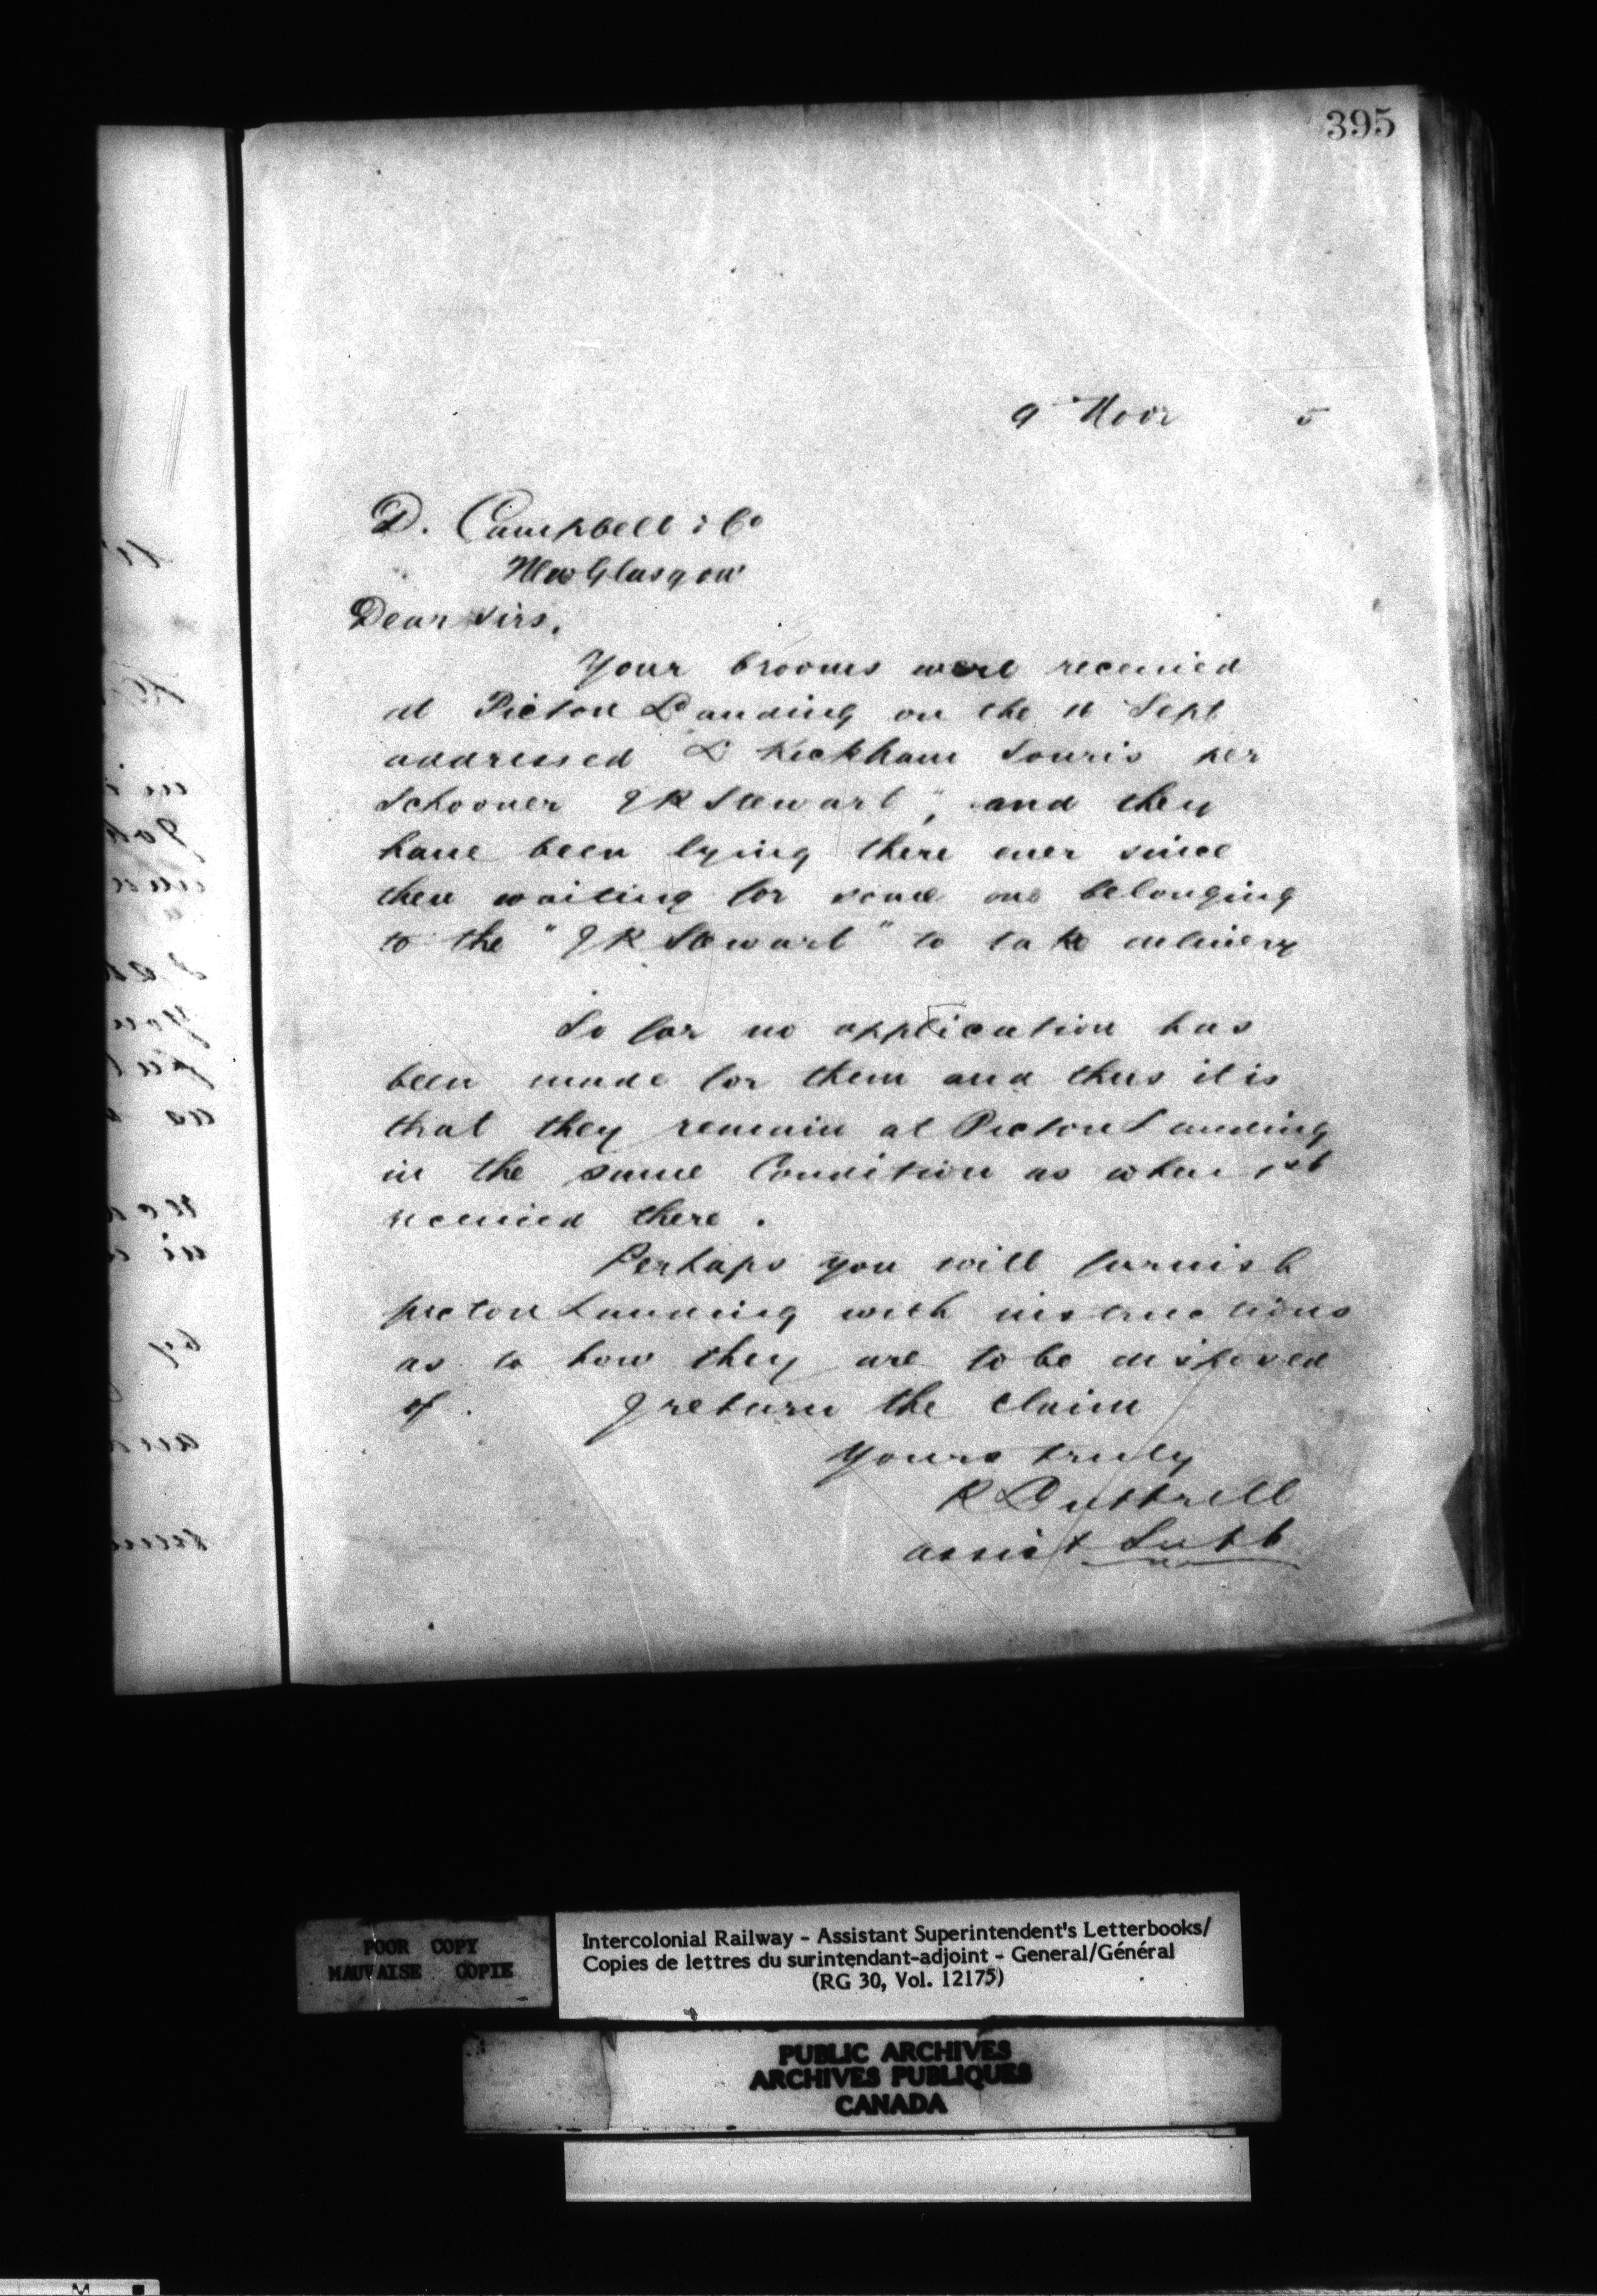 395
9 Novr 5
D. Campbell & Co
New Glasgow
Dear Sirs,
Your brooms were received
at Picton Landing on the 11 Sept
addressed L Kickham Souris per
Schooner J R Stewart", and they
have been lying there ever since
then waiting for some one belonging
to the "J R Stewart" to take delivery
So far no application has
been made for them and thus it is
that they remain at Picton Landing
in the same Condition as when 1st
received there.
Perhaps you will furnish
picton Landing with instructions
as to how they are to be disposed
of. I return the claim
Yours truly
R Luttrell
assist Supt
POOR COPY
MAUVAISE COPIE
Intercolonial Railway - Assistant Superintendent's Letterbooks/
Copies de lettres du surintendant-adjoint - General/Général
(RG 30, Vol. 12175)
PUBLIC ARCHIVES
ARCHIVES PUBLIQUES
CANADA